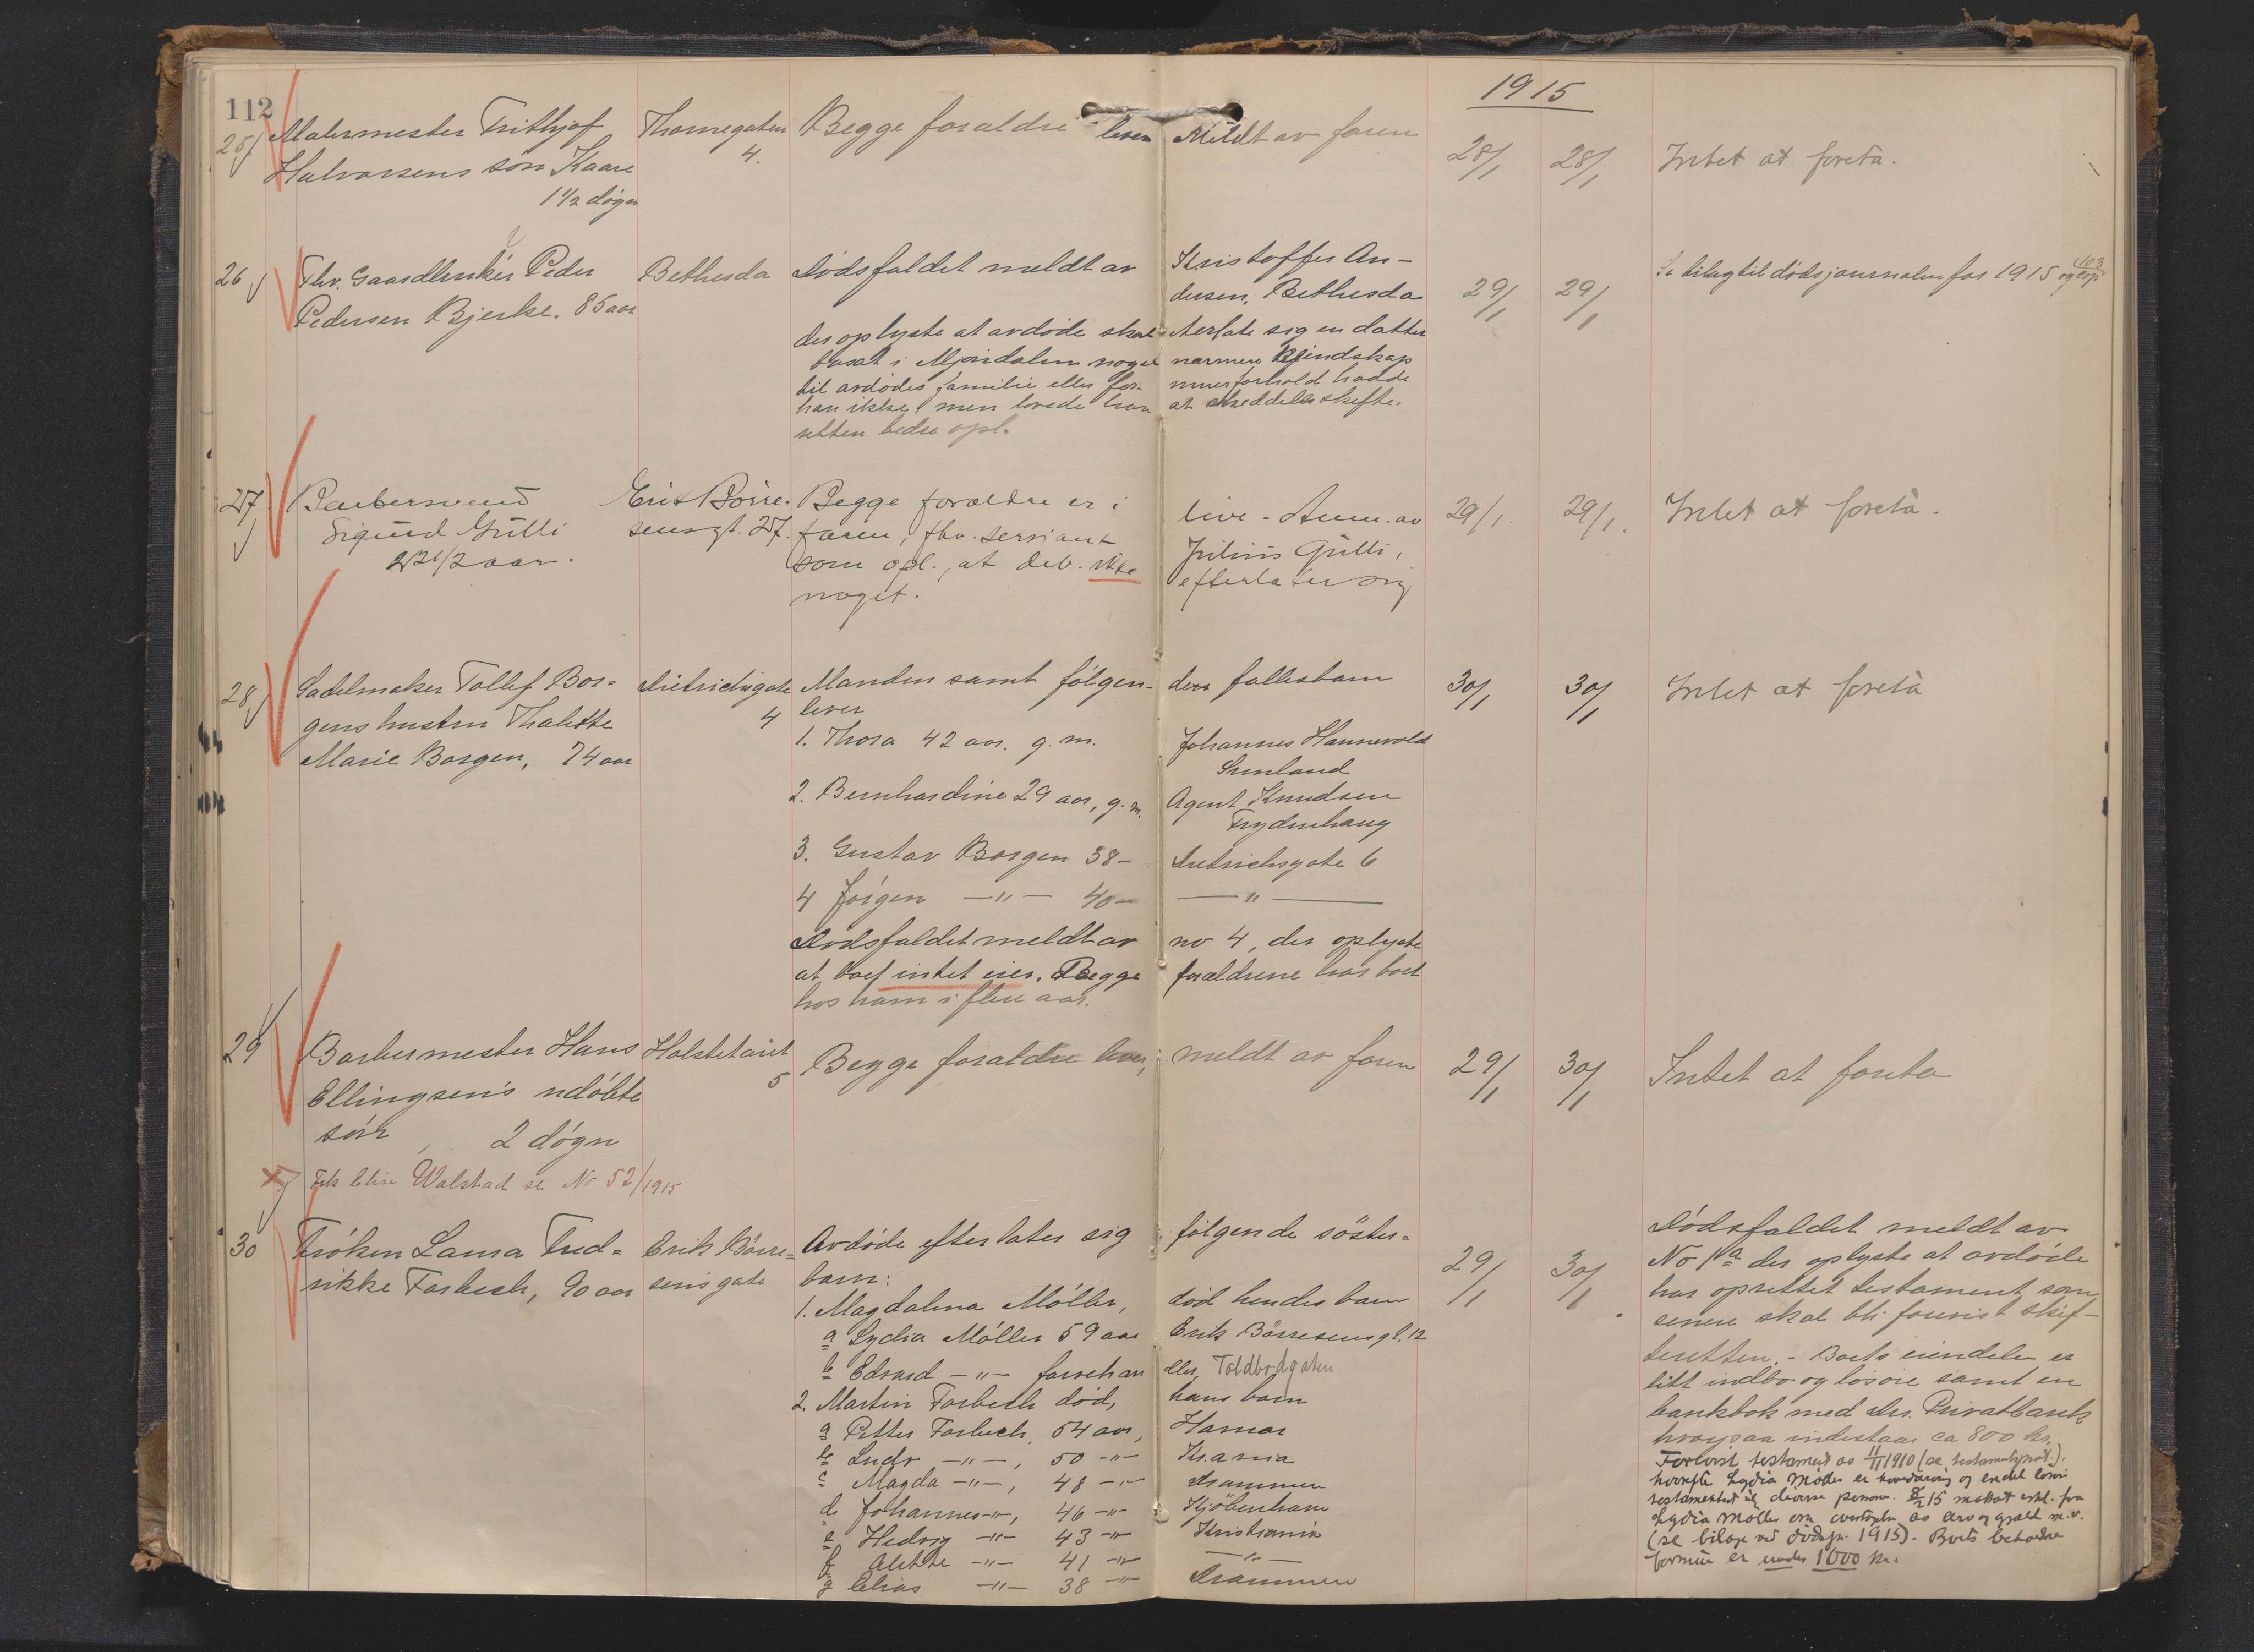 112
1915
25 Malermester Frithjof Thornegaten Begge forældre lever Meldt av faren
Halvorsens søn Kaare 4. 28/1 28/1 Intet at foreta.
1 1/2 døgn
26 Fhv. Gaardbruker Peder Bethesda Dødsfaldet meldt av Kristoffer An-
Pedersen Bjerke. 85 aar dersen, Bethesda 29/1 29/1 Se bilag til dødsjournalen for 1915 og
der oplyste at avdøde skal efterlate sig en datter
bosat i Mjøndalen noget nærmere kjendskap
til avdødes familie eller for- muesforhold hadde
han ikke, men lovede han at meddele skifte-
retten bedre opl.
27 Barbersvend Erik Børre- Begge forældre er i live - Anm. av 29/1. 29/1. Intet at foreta.
Sigurd Gulli sensgt. 27. faren, fhv. serjant Julius Gulli,
22 1/2 aar. som opl., at deb. ikke efterlater sig
noget.
28 Sadelmaker Tollef Bor- Dietrichsgate Manden samt følgen- de fællesbarn 30/1 30/1 Intet at foreta
gens hustru Thalette 4 lever
Marie Borgen, 74 aar 1. Thora 42 aar. g. m. Johannes Hannevold
2. Bernhardine 29 aar, g. m. Agent Knudsen
Frydenhaug
3. Gustav Borgen 38 - Dietrichsgate 6
4 Jørgen -"- 40 - -"-
Dødsfaldet meldt av no 4, der oplyste
at boet intet eier. Begge forældrene har boet
hos ham i flere aar.
29 Barbermester Hans Holstetaiet Begge forældre lever, meldt av faren 29/1 30/1 Intet at foreta
Ellingsen's udøbte 5
søn, 2 døgn
Frk Elise Walstad se No 52/1915
30 Frøken Laura Fred- Erik Børre- Avdøde efterlater sig følgende søster- 29/1 30/1 Dødsfaldet meldt av
rikke Forbech, 90 aar sens gate barn: No 1 a der oplyste at avdøde
1. Magdalena Møller, død hendes barn har oprettet testament som
a Lydia Møller 59 aar Erik Børresens gt. 12 senere skal bli forevist skif-
b Edvard -"- forrehan dler, Toldbodgaten teretten. - Boets eiendele er
2. Martin Forbech død, hans barn litt indbo og løsøre samt en
a Petter Forbech, 54 aar, Hamar bankbok med Drs. Privatbank
b Ludv -"-, 50 -"- Kr.ania hvorpaa indestaar ca 800 kr.
c Magda -"-, 48 -"- Drammen Forevist testament av 11/11 1910 (se testamentsprot.).
d Johannes -"-, 46 -"- Kjøbenhavn hvorefter Lydia Møller er hovedarving og endel løsøre
e Hedvig -"- 43 -"- Kristiania testamentert til diverse personer. 8/2 15 mottat erkl. fra
f Alette -"- 41 -"- -"- Lydia Møller om overtagelse av arv og gjæld m.v.
g Elias -"- 38 -"- Drammen (se bilage ved dødsjr. 1915). - Boets beholdne
formue er under 1000 kr.